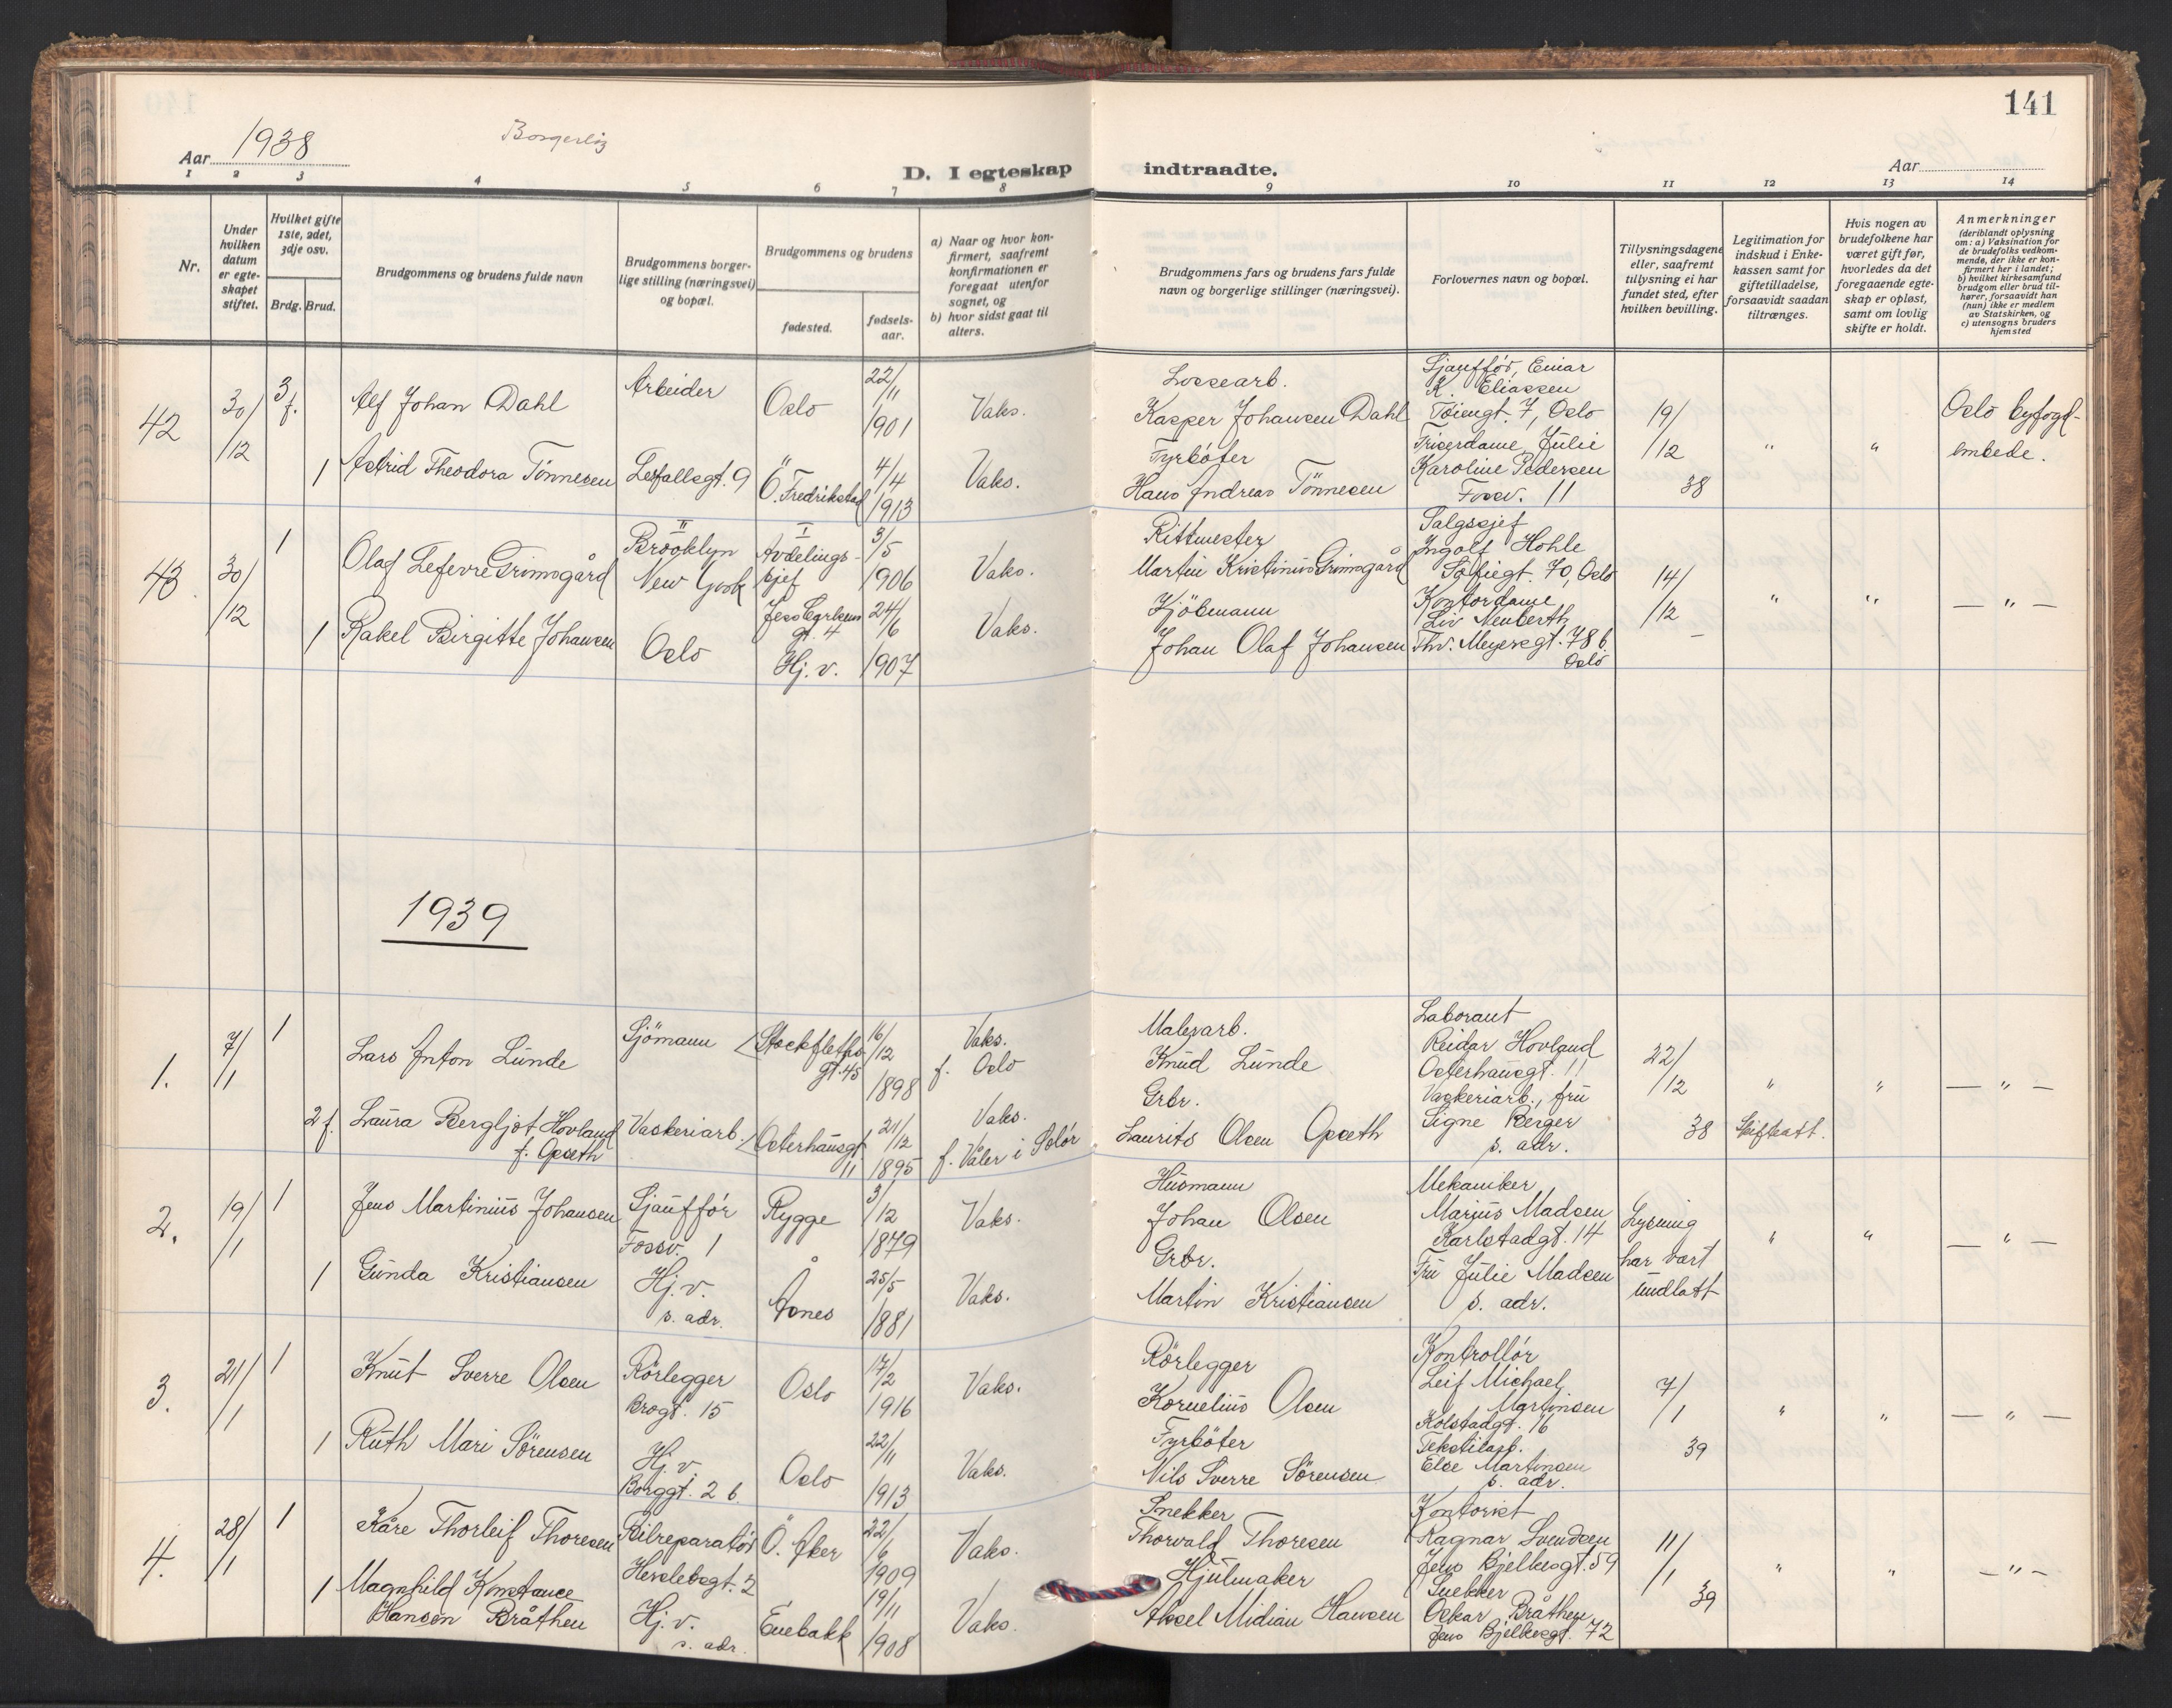 141
Aar 1938
Borgerlig
D. I egteskap indtraadte.
Aar
1 2 3 4 5 6 7 8 9 10 11 12 13 14
Nr.
Under hvilken datum er egte-skapet stiftet.
Hvilket gifte 1ste, 2det, 3dje osv.
Brdg. Brud.
Brudgommens og brudens fulde navn
Brudgommens borger-lige stilling (næringsvei) og bopæl.
Brudgommens og brudens
fødested.
fødsels-aar.
a) Naar og hvor kon-firmert, saafremt konfirmationen er foregaat utenfor sognet, og
b) hvor sidst gaat til alters.
Brudgommens fars og brudens fars fulde navn og borgerlige stillinger (næringsvei).
Forlovernes navn og bopæl.
Tillysningsdagene eller, saafremt tillysning ei har fundet sted, efter hvilken bevilling.
Legitimation for indskud i Enke-kassen samt for giftetilladelse, forsaavidt saadan tiltrænges.
Hvis nogen av brudefolkene har været gift før, hvorledes da det foregaaende egte-skap er opløst, samt om lovlig skifte er holdt.
Anmerkninger (deriblandt oplysning om: a) Vaksination for de brudefolks vedkom-mende, der ikke er kon-firmert her i landet; b) hvilket kirkesamfund brudgom eller brud til-hører, forsaavidt han (hun) ikke er medlem av Statskirken, og c) utensogns bruders hjemsted
42 30/12 3 f. Alf Johan Dahl Arbeider Oslo 22/11 1901 Vaks.
Lossearb. Kasper Johansen Dahl
Sjauffør, Einar K. Eliassen Tøiengt. 7, Oslo
19/12 38 " " Oslo byfogd-embede.
1 Astrid Theodora Tønnesen Lesfallsgt. 9 Ö. Fredrikstad 4/4 1913 Vaks.
Fyrbøter Hans Andreas Tønnesen
Friserdame, Julie Karoline Pedersen Fossv. 11
43. 30/12 1 Olaf Lefevre Grimsgård Brooklyn New York Avdelings-sjef 3/5 1906 Vaks.
Rittmester Martin Kristinius Grimsgård
Salgssjef Ingolf Hohle Sofiegt. 70, Oslo
14/12 – " " — " —
1 Rakel Birgitte Johansen Oslo Gt. 4 Hj. v. 24/6 1907 Vaks.
Kjöbmann Johan Olaf Johansen
Kontordame Liv Neuberth Thv. Meyersgt. 78 b. Oslo
1939
1. 7/1 1 Lars Anton Lunde Sjömann Stockfleths gt. 45 16/12 1898 Vaks. f. Oslo
Malerarb. Knud Lunde
Laborant Reidar Hovland Osterhausgt. 11
22/12 38 " " — " —
2 f. Laura Bergljot Hovland f. Opseth Vaskeriarb. Osterhausgt. 11 21/12 1895 Vaks. f. Våler i Solör
Grbr. Laurits Olsen Opseth
Vaskeriarb., fru Signe Berger s. adr.
Skifteatt.
2. 19/1 1 Jens Martinius Johansen Sjauffør Fossv. 1 Rygge 3/12 1879 Vaks.
Husmann Johan Olsen
Mekaniker Marius Madsen Karlstadgt. 14
Lysning har vært undlatt " " — " —
1 Gunda Kristiansen Hj. v. s. adr. Åsnes 25/5 1881 Vaks.
Grbr. Martin Kristiansen
Fru Julie Madsen s. adr.
3. 21/1 1 Knut Sverre Olsen Rørlegger Brogt. 15 Oslo 17/2 1916 Vaks.
Rørlegger Kornelius Olsen
Kontrollør Leif Michael Martinsen Kolstadgt. 16
7/1 39 " " — " —
1 Ruth Mari Sørensen Hj. v. Borggt. 2 b. Oslo 22/11 1913 Vaks.
Fyrbøter Nils Sverre Sørensen
Tekstilarb. Else Martinsen s. adr.
4. 28/1 1 Kåre Thorleif Thoresen Bilreparatør Herslebsgt. 2 Ö. Aker 22/6 1909 Vaks.
Snekker Thorvald Thoresen
Kontorist Ragnar Svendsen Jens Bjelkesgt. 59
11/1 39 " " — " —
1 Magnhild Konstance Hansen Bråthen Hj. v. s. adr. Enebakk 19/11 1908 Vaks.
Hjulmaker Aksel Midian Hansen
Snekker Oskar Bråthen Jens Bjelkesgt. 72